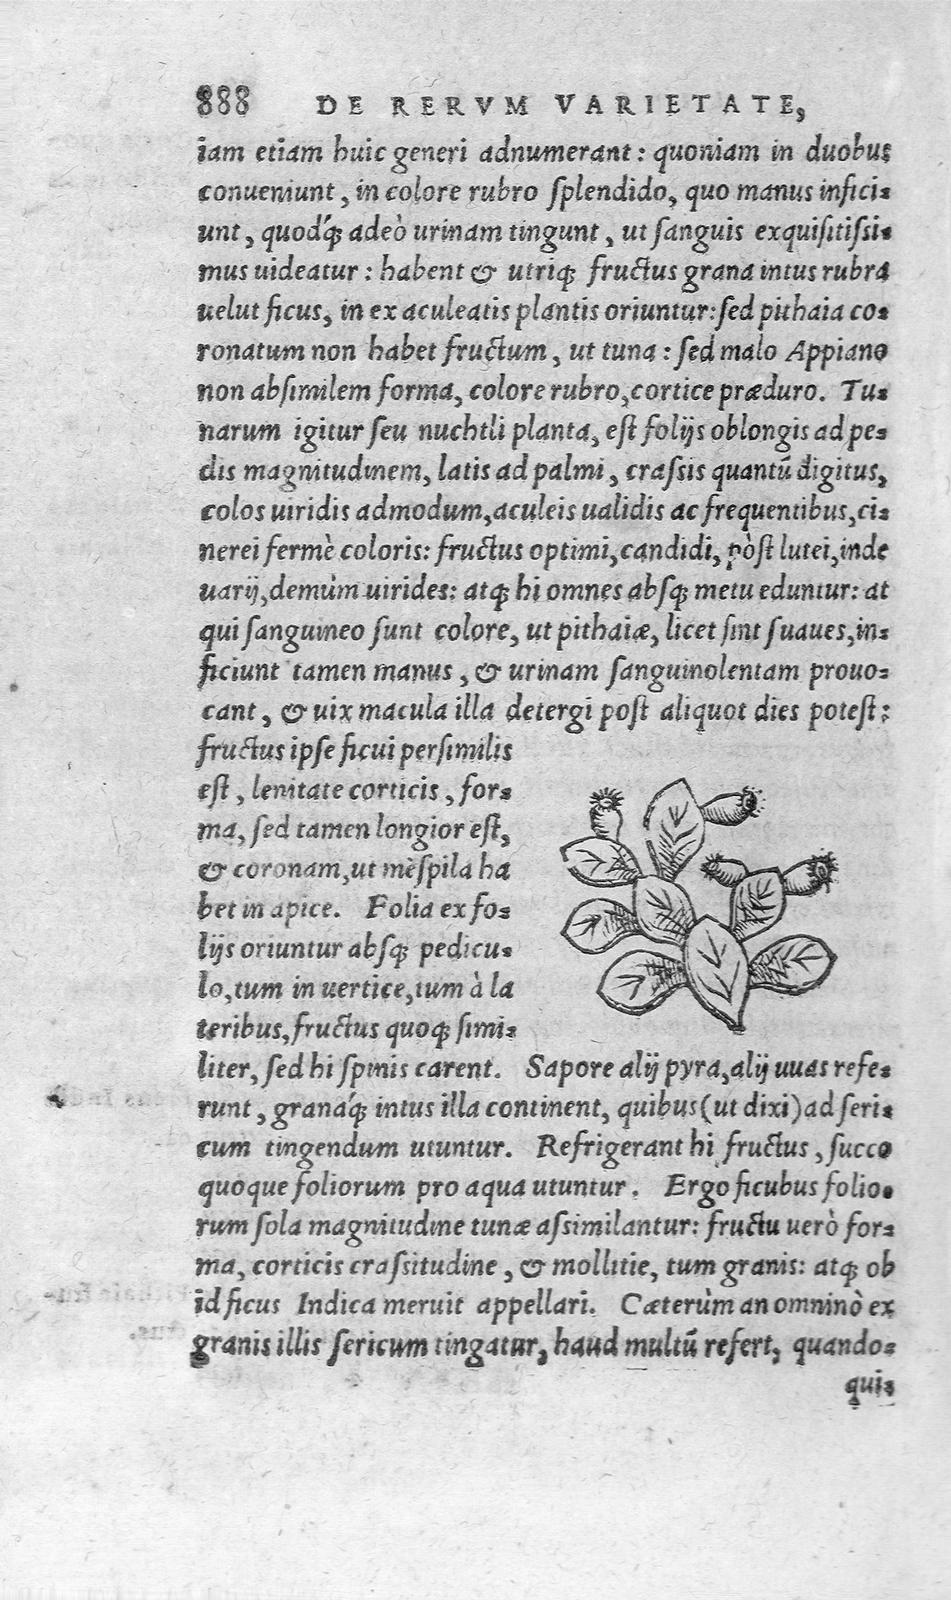 888 DE RERVM VARIETATE,
iam etiam huic generi adnumerant: quoniam in duobus
conueniunt, in colore rubro ſplendido, quo manus infici-
unt, quodq́; adeò urinam tingunt, ut ſanguis exquiſitiſsi-
mus uideatur: habent & utriq; fructus grana intus rubra
uelut ficus, in ex aculeatis plantis oriuntur: ſed pithaia co-
ronatum non habet fructum, ut tuna: ſed malo Appiano
non abſimilem forma, colore rubro, cortice præduro. Tu-
narum igitur ſeu nuchtli planta, eſt folijs oblongis ad pe-
dis magnitudinem, latis ad palmi, craſsis quantũ digitus,
colos uiridis admodum, aculeis ualidis ac frequentibus, ci-
nerei fermè coloris: fructus optimi, candidi, pòſt lutei, inde
uarij, demùm uirides: atq; hi omnes abſq; metu eduntur: at
qui ſanguineo ſunt colore, ut pithaiæ, licet ſint ſuaues, in-
ficiunt tamen manus, & urinam ſanguinolentam prouo-
cant, & uix macula illa detergi poſt aliquot dies poteſt:
fructus ipſe ficui perſimilis
eſt, lenitate corticis, for-
ma, ſed tamen longior eſt,
& coronam, ut mèſpila ha
bet in apice. Folia ex fo-
lijs oriuntur abſq; pedicu-
lo, tum in uertice, tum à la
teribus, fructus quoq; ſimi-
liter, ſed hi ſpinis carent. Sapore alij pyra, alij uuas refe-
runt, granaq́; intus illa continent, quibus (ut dixi) ad ſeri-
cum tingendum utuntur. Refrigerant hi fructus, ſucco
quoque foliorum pro aqua utuntur. Ergo ficubus folio-
rum ſola magnitudine tunæ aſsimilantur: fructu uerò for-
ma, corticis craſsitudine, & mollitie, tum granis: atq; ob
id ficus Indica meruit appellari. Cæterùm an omninò ex
granis illis ſericum tingatur, haud multũ refert, quando-
qui-